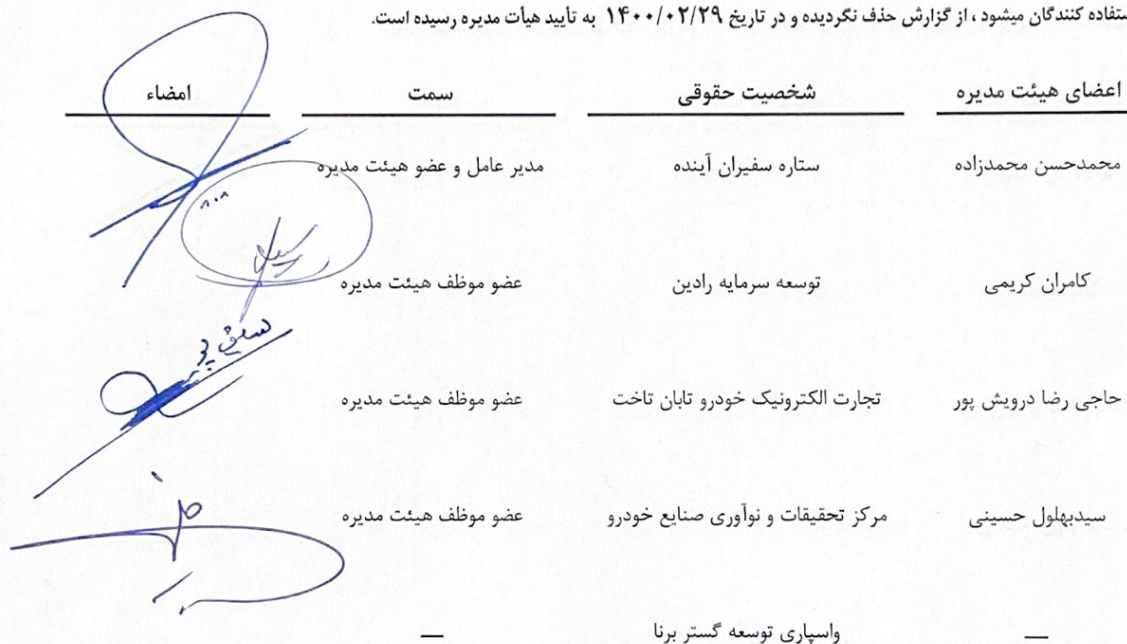 ستفاده کنندگان میشود ، از گزارش حذف نگردیده و در تاریخ ۱۴۰۰/۰۲/۲۹ به تأیید هیأت مدیره رسیده است.
اعضای هیئت مدیره شخصیت حقوقی سمت امضاء
محمدحسن محمدزاده ستاره سفیران آینده مدیر عامل و عضو هیئت مدیره
کامران کریمی توسعه سرمایه رادین عضو موظف هیئت مدیره
حاجی رضا درویش پور تجارت الکترونیک خودرو تابان تاخت عضو موظف هیئت مدیره
سیدبهلول حسینی مرکز تحقیقات و نوآوری صنایع خودرو عضو موظف هیئت مدیره
— واسپاری توسعه گستر برنا —